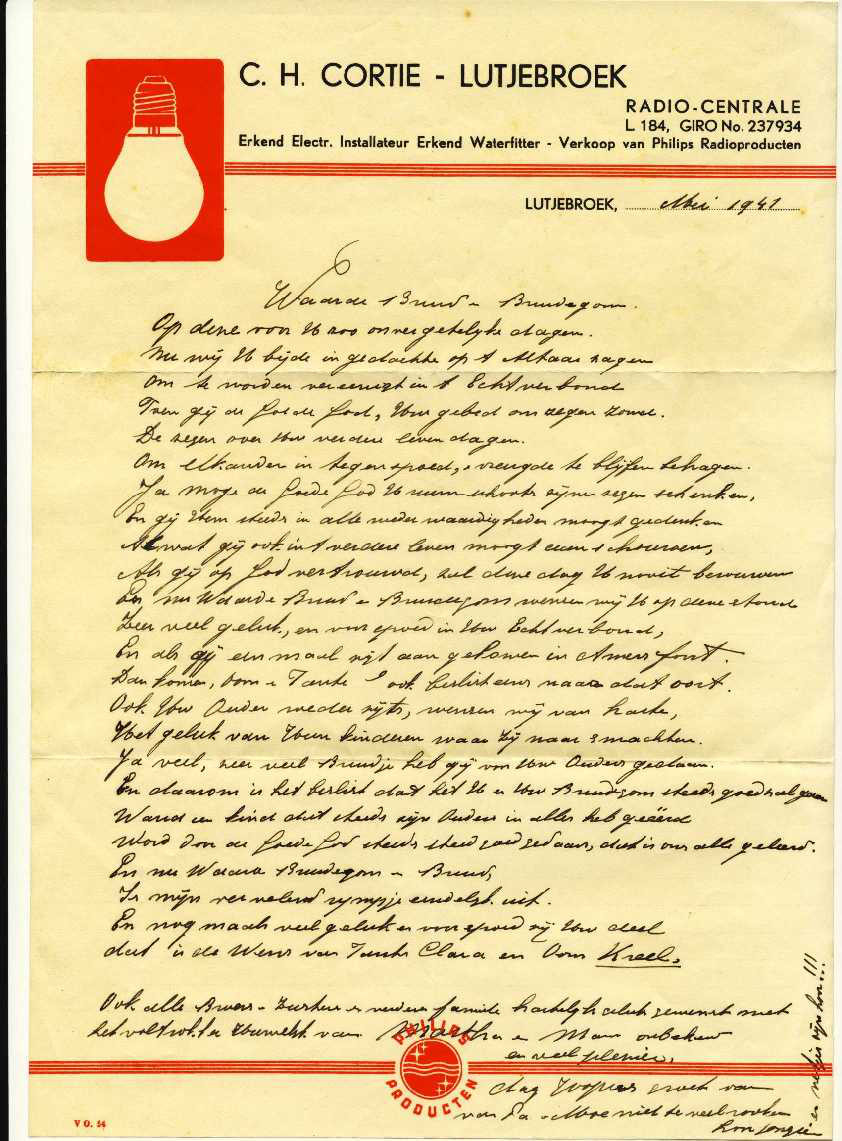 C. H. CORTIE - LUTJEBROEK
RADIO-CENTRALE
L 184, GIRO No. 237934
Erkend Electr. Installateur Erkend Waterfitter - Verkoop van Philips Radioproducten
LUTJEBROEK, Mei 1941
Waarde Bruid en Bruidegom.
Op deze voor U zoo onvergetelijke dagen.
Nu wij U bijde in gedachte op 't Altaar zagen
Om te worden vereenigt in 't Echtverbond
gij de Goede God, Uw gebed om zegen zond.
De zegen over Uw verdere leven dagen.
Om Elkander in tegenspoed, en vreugde te blijfen behagen.
Ja moge de Goede God U zijne zegen schenken,
En gij Hem steeds in alle wederwaardigheden moogt gedenken
Al wat gij ook in 't verdere leven moogt aanschouwen,
Als gij op God vertrouwd, zal deze dag U nooit berouwen
En nu Waarde Bruid en Bruidegom wensen wij U op deze stond
Zeer veel geluk, en voorspoed in Uw Echtverbond,
En als gij eenmaal zijt aangekomen in Amersfoort.
Dan komen, Oom en Tante ook beslist eens naar dat oort.
Ook Uw Ouder wederzijts, wensen wij van harte,
Het geluk van Hun kinderen waar zij naar smachten.
Ja veel, zeer veel Bruidje heb gij voor Uw Ouders gedaan.
En daarom is het beslist dat het U en Uw Bruidegom steeds goed zal gaan
Want een kind dat steeds zijn Ouders in alles heb geëerd
Word door de Goede God steeds goed gedaan, dat is ons alle geleerd.
En nu Waarde Bruidegom en Bruid,
Is mijn vervelend rympje eindelijk uit.
En nog maals veel geluk en voorspoed zij Uw deel
dat is de Wens van Tante Clara en Oom Kreel.
Ook alle Broers en Zusters en verdere familie hartelijk geluk gewenscht met
het voltrokken Huwelijk van en Man onbekend
en veel plezier.
PHILIPS PRODUCTEN
dag
van Pa en Moe niet te veel rooken
V O. 54